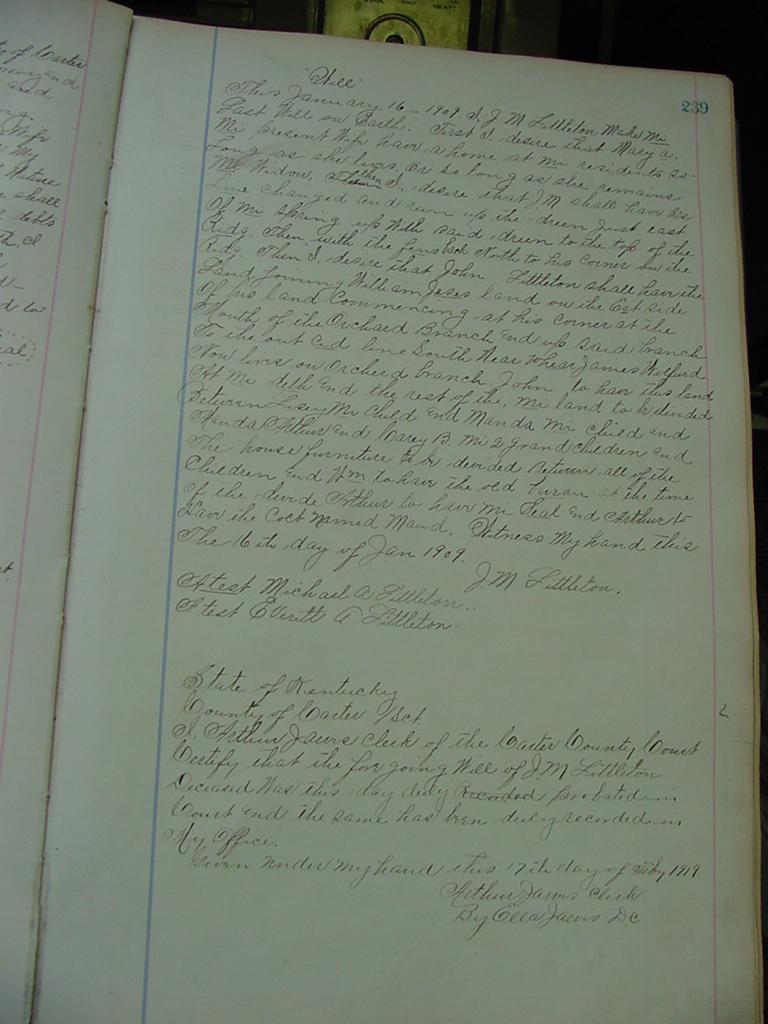 ty of Carter
and
Wife
My
Nature
shall
debts
I
d to
eal
239
"Will"
This January 16 - 1909 I, J M Littleton Make Mi
Last Will on Earth. First I, desire that Mary A.
Mi present Wife have a home at mi residents so
Long as she lives, or so long as she remains
Mi Widow. then I, desire that J M shall have his
Line changed and run up the dreen Just east
Of Mi Spring up With said dreen to the top of the
Ridg. Then with the fens back North to his corner on the
Ridg. Then I, desire that John Littleton shall have the
Land Joining William land on the East side
Of his land Commencing at his corner at the
Mouth of the Orchard Branch and up said branch
To the out End line South Near Whear James Wolfurd
Now lives on Orcherd branch. John to have this land
At Mi deth End the rest of the, mi land to be divided
Between Mi Child End Manda Mi child End
Manda Arthur End Carey B. Mi 2 grand children End
The house furniture to be divided Between all of the
Children End Wm to have the old at the time
Of the divide Arthur to have mi Seal End Arthur to
Have the Colt Named Maud. Witness My hand this
The 16th day of Jan 1909.
J. M Littleton.
Atest Michael A Littleton..
Atest Everitt A Littleton.
State of Kentucky
County of Carter /Sct
I, Arthur Jarvis Clerk of the Carter County Court
Certify that the fore going Will of J. M Littleton
Deceased Was this day duly Recorded probated in
Court End the same has been duly recorded in
My Office.
Given Under my hand this 17th day of Feby 1919
Arthur Jarvis Clerk
By Ella Jarvis D.C